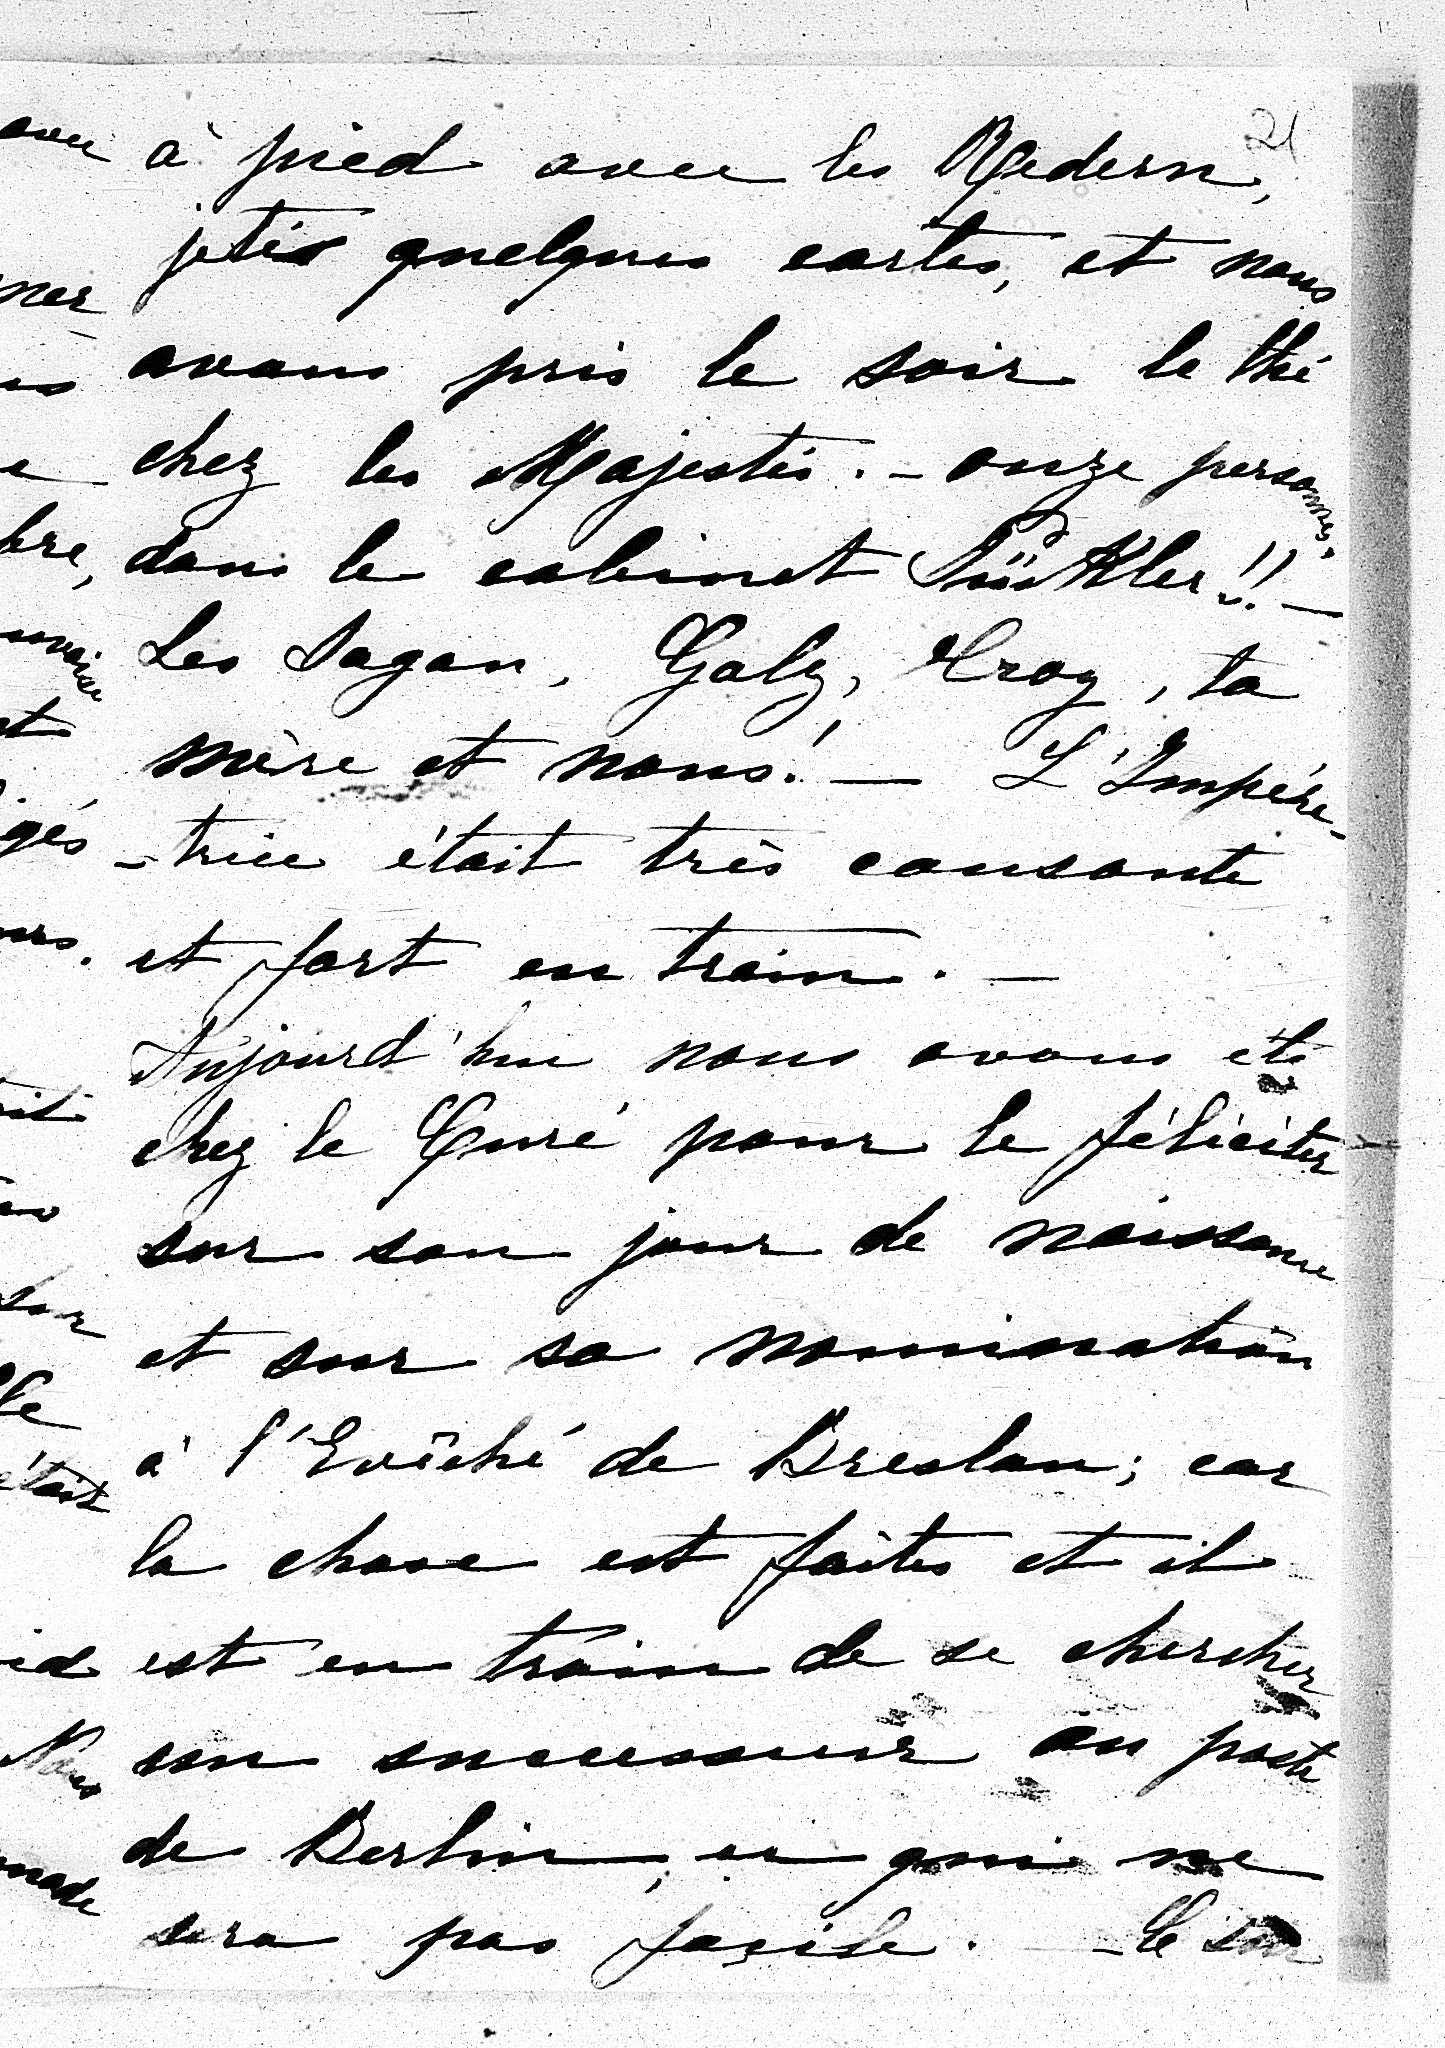 21
à pied avec les Redern,
jetés quelques cartes, et nous
avons pris le soir le thé
chez les Majestés. - onze personnes,
dans le cabinet Pückler!! -
Les Sagan, Galy, Croy, ta
mère et nous! - L'Impéra-
-trice était très causante
et fort en train. -
Aujourd'hui nous avons été
chez le Curé pour le féliciter
sur son jour de naissance
et sur sa nomination
à l'Evêché de Breslau; car
la chose est faites et il
est en train de se chercher
un successeur au poste
de Berlin, ce qui ne
sera pas facile. - Le soir